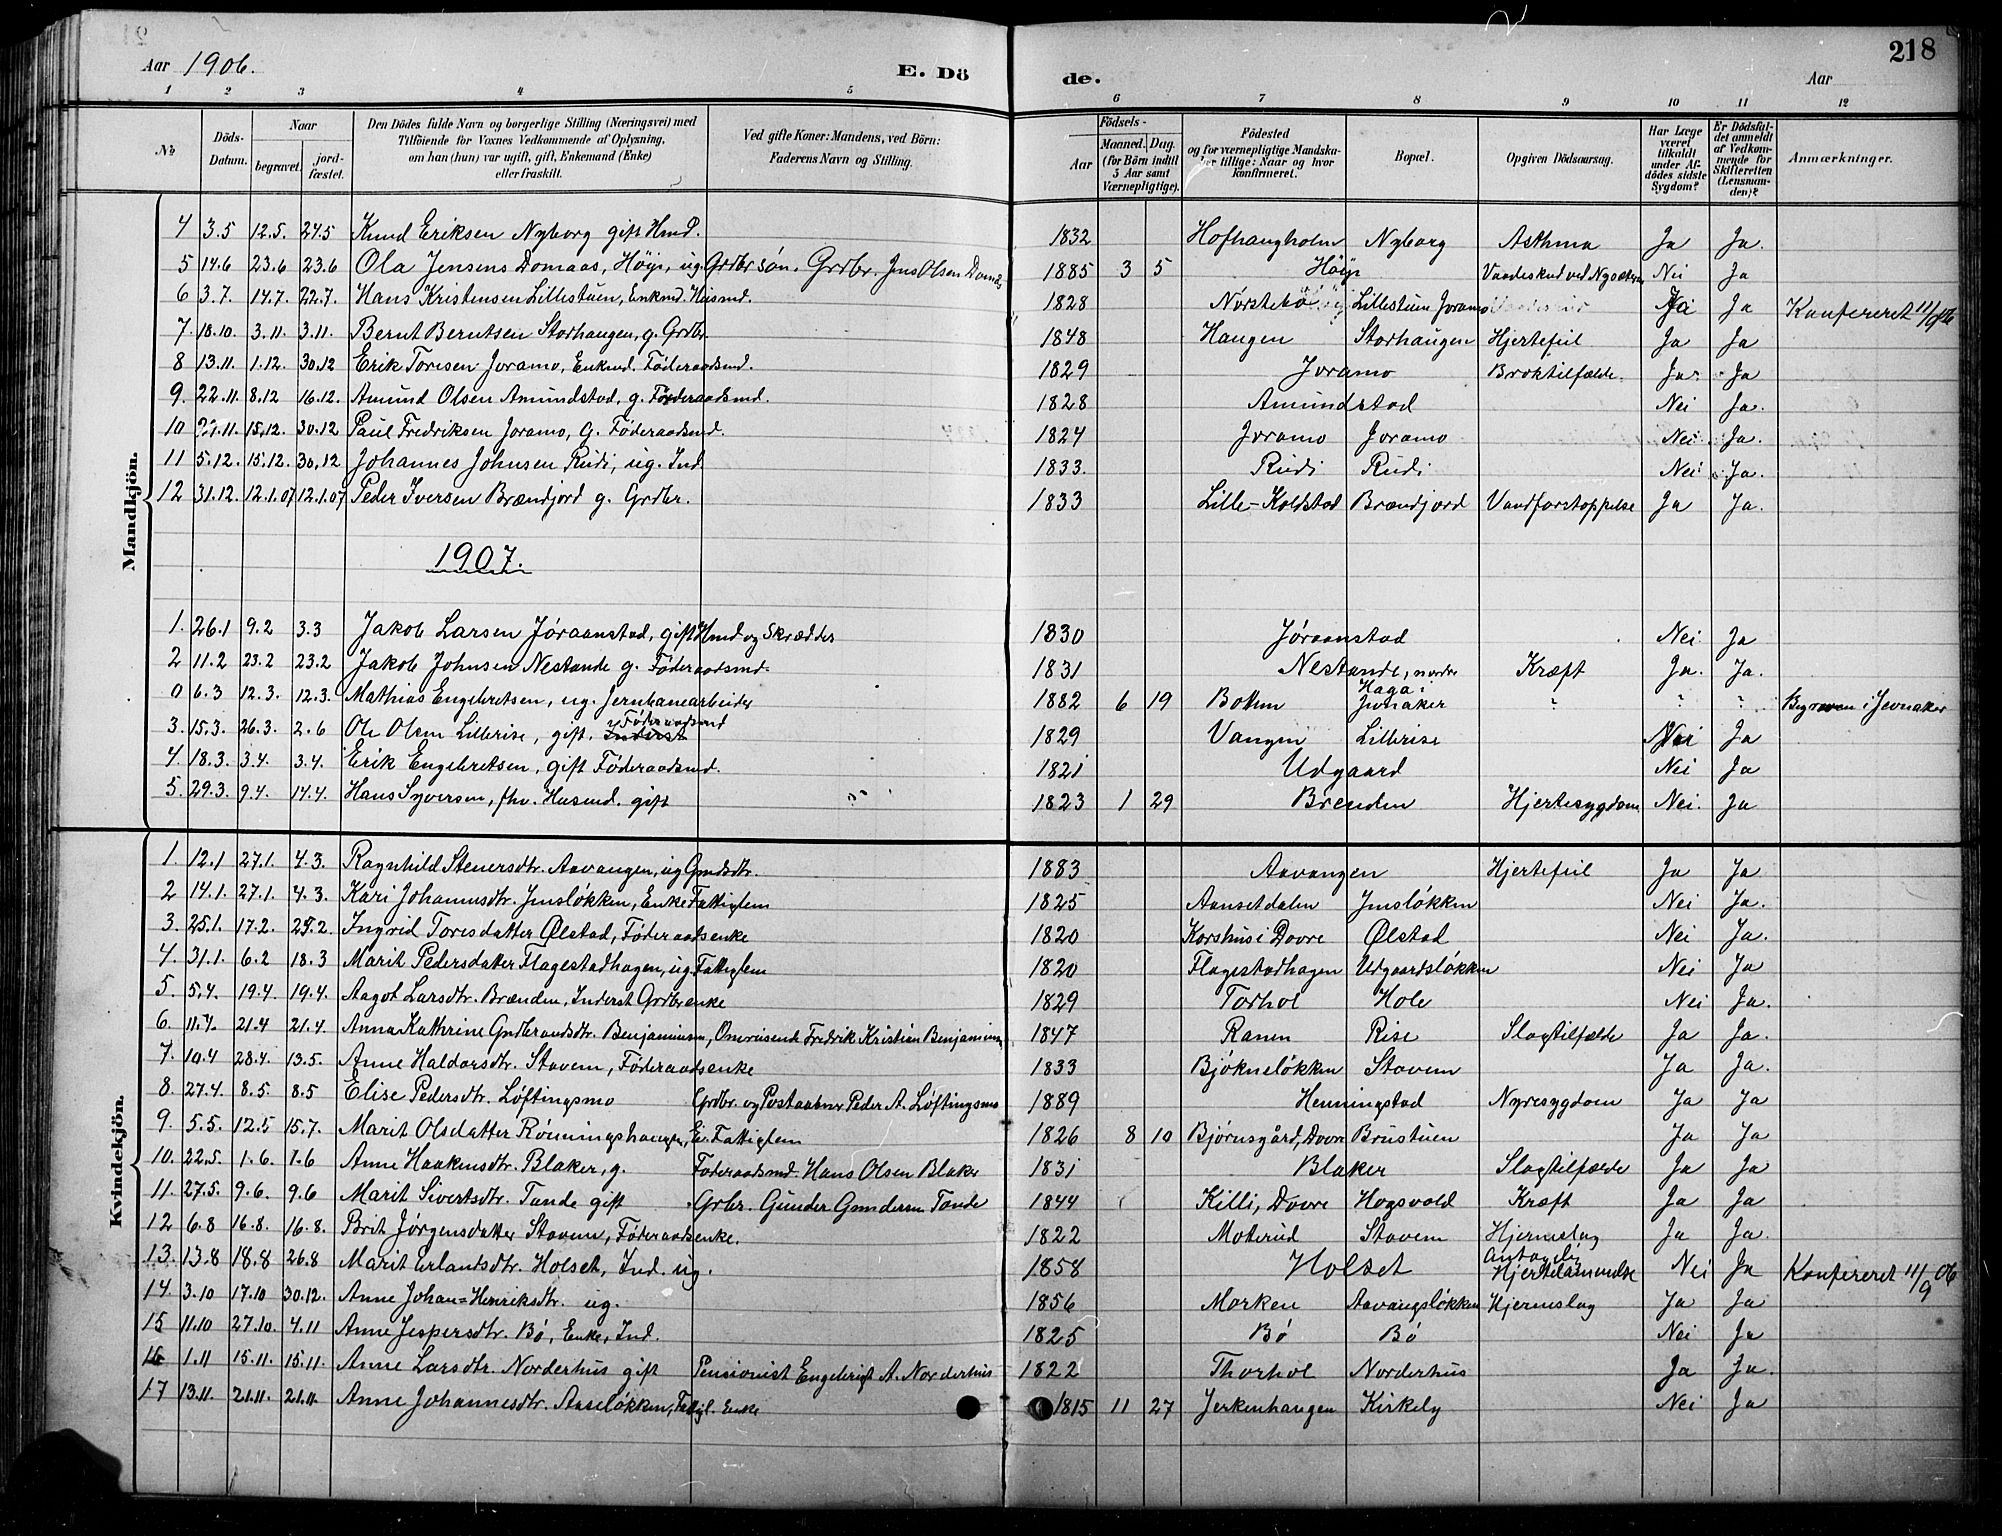 218
Aar 1906. E. Dö de. Aar
1 2 3 4 5 6 7 8 9 10 11 12
№
Döds-Datum.
Naar
begravet. jordfæstet.
Den Dödes fulde Navn og borgerlige Stilling (Næringsvei) med
Tilföiende for Voxnes Vedkommende af Oplysning,
om han (hun) var ugift, gift, Enkemand (Enke)
eller fraskilt.
Ved gifte Koner: Mandens, ved Börn:
Faderens Navn og Stilling.
Födsels-
Aar
Maaned. Dag.
(for Börn indtil
5 Aar samt
Værnepligtige).
Födested
og for værnepligtige Mandska-
ber tillige: Naar og hvor
konfirmeret.
Bopæl.
Opgiven Dödsaarsag.
Har Læge
været
tilkaldt
under Af-
dödes sidste
Sygdom?
Er Dödsfal-
det anmeldt
af Vedkom-
mende for
Skifteretten
(Lensman-
den)?
Anmærkninger.
Mandkjön.
4 3.5 12.5. 24.5 Knud Eriksen Nyborg gift Hmd. 1832 Hofhaugholm Nyborg Asthma Ja Ja.
5 14.6 23.6 23.6 Ola Jensens Domaas, Høye, ug. Grdbr søn. Grdbr. Jens Olsen Domaas 1885 3 5 Høye Vaadeskud ved Nysæteren Nei Ja
6 3.7. 14.7. 22.7. Hans Kristensen Lillestuen, Enkmd. Husmd. 1828 Nørstebø Lillestuen Joramo Ja Konfereret 11/9 06
7 18.10 3.11. 3.11. Bernt Berntsen Storhaugen, g. Grdbr. 1848 Haugen Storhaugen Hjertefeil Ja Ja
8 13.11. 1.12. 30.12 Erik Toresen Joramo, Enkmd. Føderaadsmd. 1829 Joramo Broktilfælde. Ja. Ja
9. 22.11. 8.12 16.12. Amund Olsen Amundstad, g. Føderaadsmd. 1828 Amundstad Nei Ja.
10 15.12. 30.12 Paul Fredriksen Joramo, g. Føderaadsmd. 1824 Joramo Joramo Nei Ja.
11 5.12. 15.12. 30.12 Johannes Johnsen Rudi, ug. Ind. 1833. Rudi Rudi Nei Ja.
12 31.12. 12.1.07 12.1.07 Peder Iversen Brændjord g. Grdbr. 1833 Lille-Kolstad Brændjord Vandforstoppelse Ja Ja.
1907.
1. 26.1 9.2 3.3 Jakob Larsen Jøraanstad, gift Hmd og Skrædder 1830 Jøraanstad Nei Ja
2 11.2 23.2 23.2 Jakob Johnsen Nestande g. Føderaadsmd. 1831 Nestande, nordre Kræft Ja. Ja.
0 6.3 12.3. 12.3. Mathias Engebretsen, ug. Jernbanearbeider 1882 6 19 Botnen Haga i Jevnaker ? ? ? Begraven i Jevnaker
3. 15.3. 26.3. 2.6 Ole Olsen Lillerise, gift. Inderst Føderaadsmd 1829 Vangen Lillerise Nei Ja
4 18.3. 3.4. 3.4. Erik Engebretsen, gift Føderaadsmd. 1821 Udgaard Nei Ja
5. 29.3. 9.4. 14.4. Hans Syversen, fhv. Husmd. gift 1823 1 29 Brenden Hjertesygdom Nei. Ja
Kvindekjön.
1. 12.1 27.1. 4.3. Ragnhild Stenersdtr. Aavangen, ug Gmdsdtr. 1883 Aavangen Hjertefeil Ja Ja
2 14.1. 27.1. 4.3. Kari Johannesdtr. Jensløkken, Enke Fattiglem 1825 Aansetdalen Jensløkken Nei Ja.
3. 25.1. 17.2. 25.2. Ingrid Toresdatter Ølstad, Føderaadsenke 1820 Korshus i Dovre Ølstad Nei Ja.
4. 31.1. 6.2 18.3 Marit Pedersdatter Flagestadhagen, ug. Fattiglem 1820 Flagestadhagen Udgaardsløkken Nei Ja
5. 5.4. 19.4. 19.4. Aagot Larsdtr. Brænden, Inderst Grdbr enke 1829 Torhol Hole Nei Ja.
6. 11.4. 21.4 21.4. Anna Kathrine Gudbrandsdtr. Benjaminsen, Omreisende Fredrik Kristian Benjaminsen 1847 Ranen Rise Slagtilfælde Ja Ja.
7. 10.4 28.4. 13.5. Anne Haldorsdtr. Stavem, Føderaadsenke 1833 Bjøkneløkken Stavem Ja Ja.
8. 27.4. 8.5. 8.5 Elise Pedersdtr. Løftingsmo Grdbr. og Postaabner Peder A. Løftingsmo 1889 Henningstad Nyresygdom Ja Ja
9. 5.5. 12.5 15.7. Marit Olsdatter Rønningshaugen, E. Fattiglem 1826 8 10 Bjørnsgård, Dovre Brustuen Ja Ja
10. 22.5. 1.6. 1.6 Anne Haakensdtr. Blaker, g. Føderaadsmd. Hans Olsen Blaker 1831 Blaker Slagtilfælde Ja Ja
11. 27.5. 9.6. 9.6 Marit Sivertsdtr. Tande gift Grbr. Gunder Gundersen Tande 1844 Killi, Dovre Hogsvold Kræft Ja Ja
12 6.8 16.8. 16.8. Brit Jørgensdatter Stavem, Føderaadsenke. 1822 Moterud Stavem Hjerneslag Ja Ja.
13. 13.8 18.8 26.8 Marit Erlandsdtr. Holset, Ind. ug. 1858 Holset Antagelig Hjertelammelse Nei Ja Konfereret 11/9 06
14. 3.10 17.10 30.12. Anne Johan-Henriksdtr. ug. 1856 Morken Aavangsløkken Hjerneslag Ja Ja
15 11.10 27.10. 4.11 Anne Jespersdtr. Bø, Enke, Ind. 1825 Bø Bø Nei Ja
16 1.11 15.11. 15.11. Anne Larsdtr. Norderhus gift Pensionist Engebrigt A. Norderhus 1822 Thorhol Norderhus Ja Ja.
17 13.11. 21.11. 21.11. Anne Johannesdtr. Aaseløkken, Fattigl. Enke 1815 11 27 Jerkenhaugen Kirkely Nei Ja